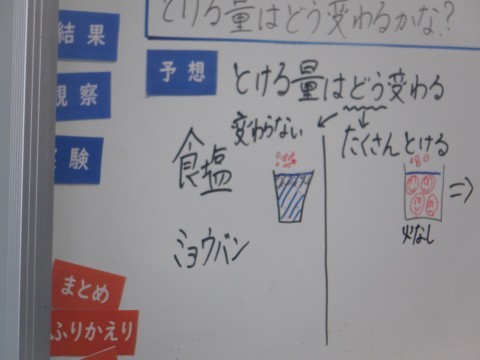 とける量はどう変わるかな?
結果
予想
とける量はどう変わる
観察
変わらない
たくさんとける
食塩
験
火なし
ミョウバン
まとめ
ふりかえり